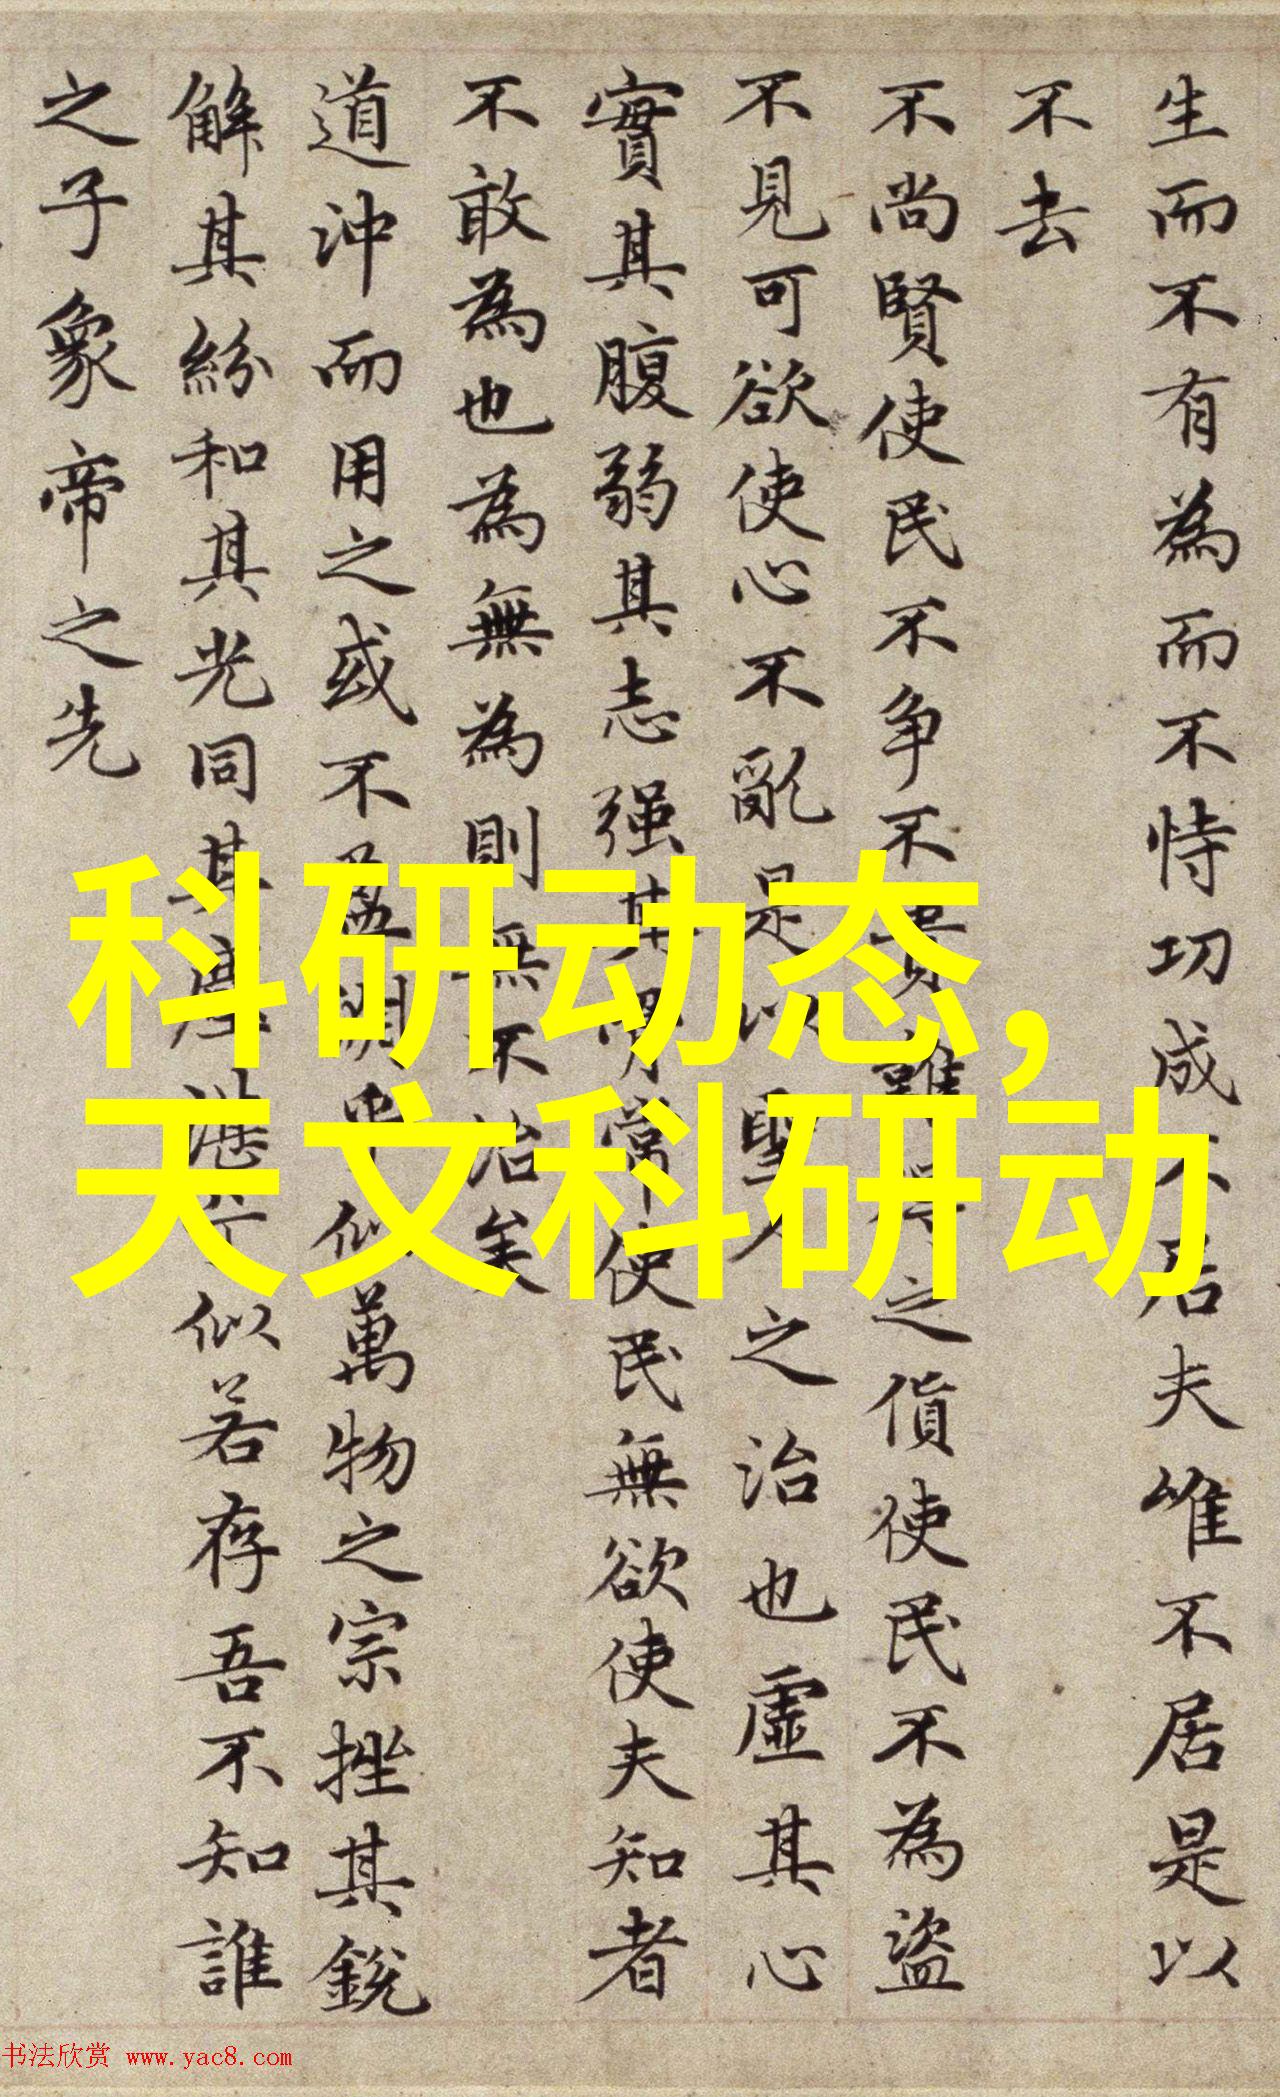 生而不有為而不恃功成不居夫唯不居是以
不去
不尚賢使民不争不貴難得之貨使民不為盜
不見可欲使心不亂是以聖人之治也虛其心
實其腹弱其志强其骨常使民無欲使夫知者
不敢為也為無為則無不治矣
道沖而用之或不盈淵乎似萬物之宗挫其銳
解其紛和其光同其塵湛兮似若存吾不知誰
之子象帝之先
科研动态,
天文科研动
书法欣赏 www.yac8.com